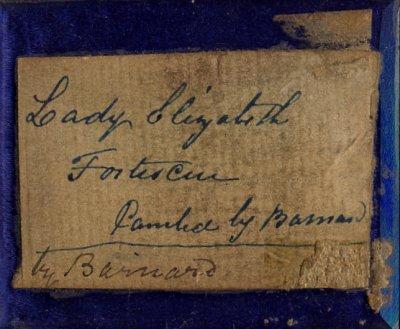 Lady Elizabeth
Fortescue
Painted by Barnard
by Barnard